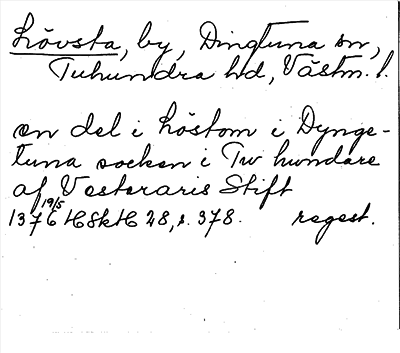 Lövsta, by, Dingtuna sn,
Tuhundra hd, Västm. l.
en del i Löstom i Dynge-
tuna socken i Tw hundare
af Vesteraris Stift
1376 19/5 HSkH 28, s. 378. regest.